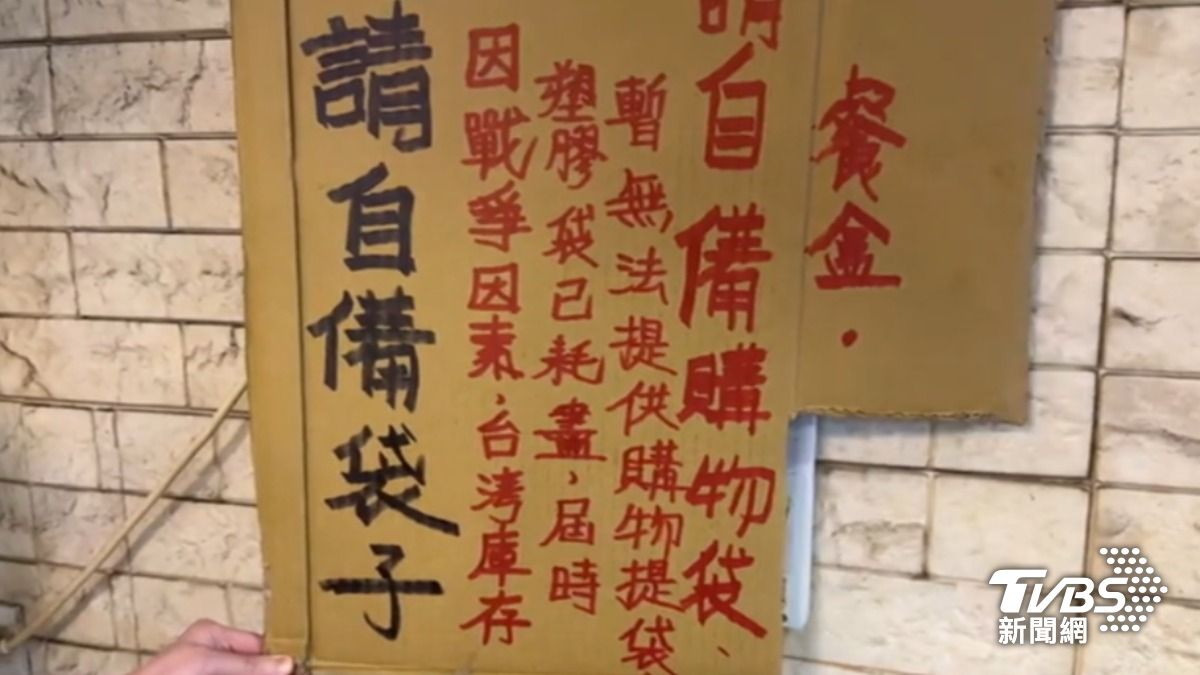 請自備袋子
因戰爭因素、台灣庫存
塑膠袋已耗盡,屆時
暫無法提供購物提袋
請自備購物袋、
餐盒.
TVBS
新聞網